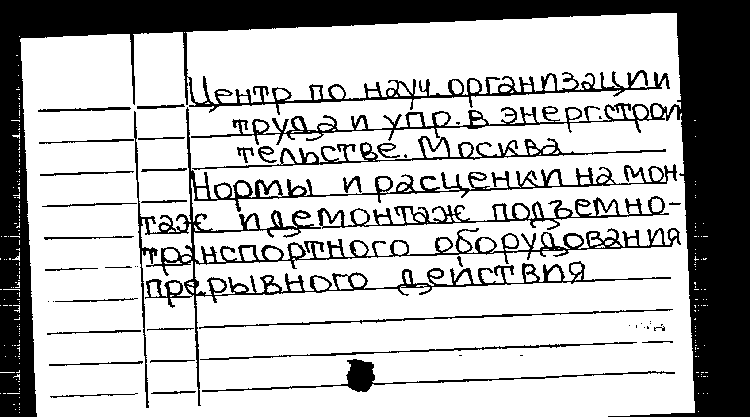 Центр по науч. организации
труда и упр. в энерг. строи
тельстве. Москва.
Нормы и расценки на мон-
таж и демонтаж подъемно-
транспортного оборудования
прерывного действия